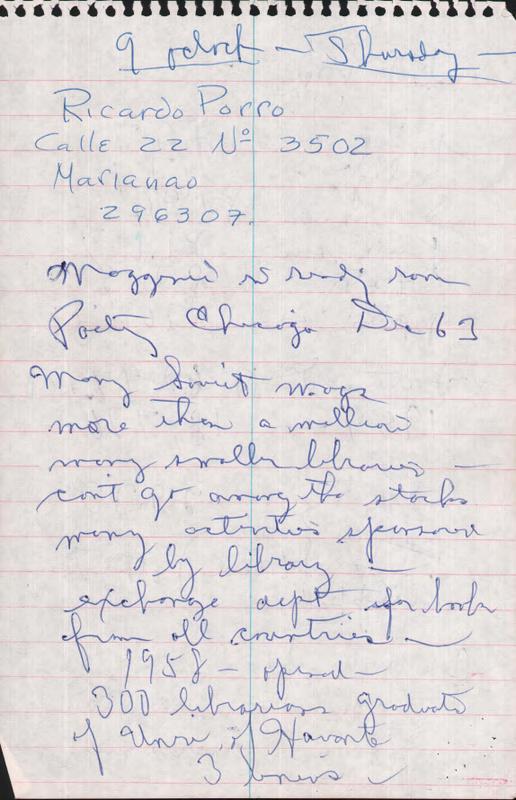 9 oclock — Thursday —
Ricardo Porro
Calle 22 Nº 3502
Marianao
296307.
Magazine is reading room
Poetry Chicago Dec 63
Many Soviet mags
more than a million
many smaller libraries —
cant go among the stacks
many activities sponsored
by library —
exchange dept for books
from all countries —
1958 — opened —
300 librarians graduate
of Univ. of Havana
3